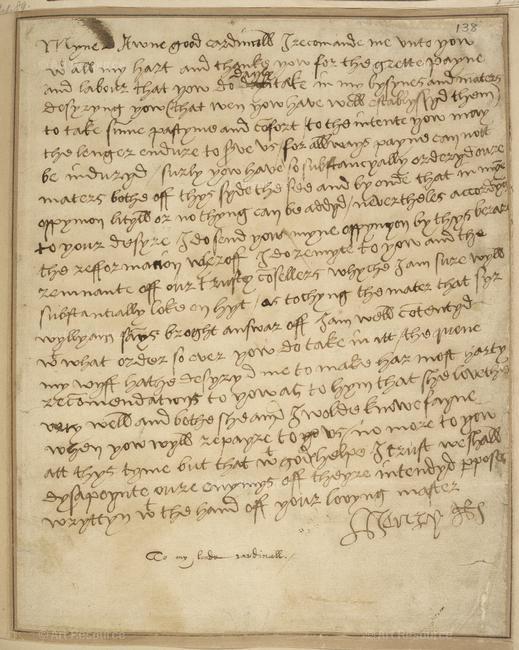 138
Myne Awne good cardinall I recomande me unto yow
wt all my hart and thanke yow for the grette payne
and labour that yow do dayly take in my bysynes and maters
desyryng yow (that wen yow have well establyssyd them)
to take summe pastyme and cofort to the intente yow may
the lenger endure to serve us for allways payne can nott
be induryd surly yow have so substancyally orderyd oure
maters bothe off thys syde the see and by onde that in myne
oppynion lityll or no thyng can be addyd / nevertheles accordyng
to your desyre I do send yow myne oppynyon by thys berar
the refformation wheroff I do remytte to yow and the
remnante off our trusty cosellers whyche I am sure wyll
substantially loke on hyt / as tochyng the mater that syr
wyllyam says broght answar off I am well cotentyd
wt what order so ever yow do take in itt / the quene
my wyff hathe desyryd me to make har most harty
recommendations to yow as to hym that she lovethe
very well and bothe she and I wolde knowe fayne
when yow wyll repayre to us / no more to yow
att thys tyme but that wt gods helpe I trust we shall
dysapoynte oure enymys off theyre intendyd pposse
wryttyn wt the hand off your lovyng master
Henry
To my lorde cardinall.
© Art Resource © Art Resource